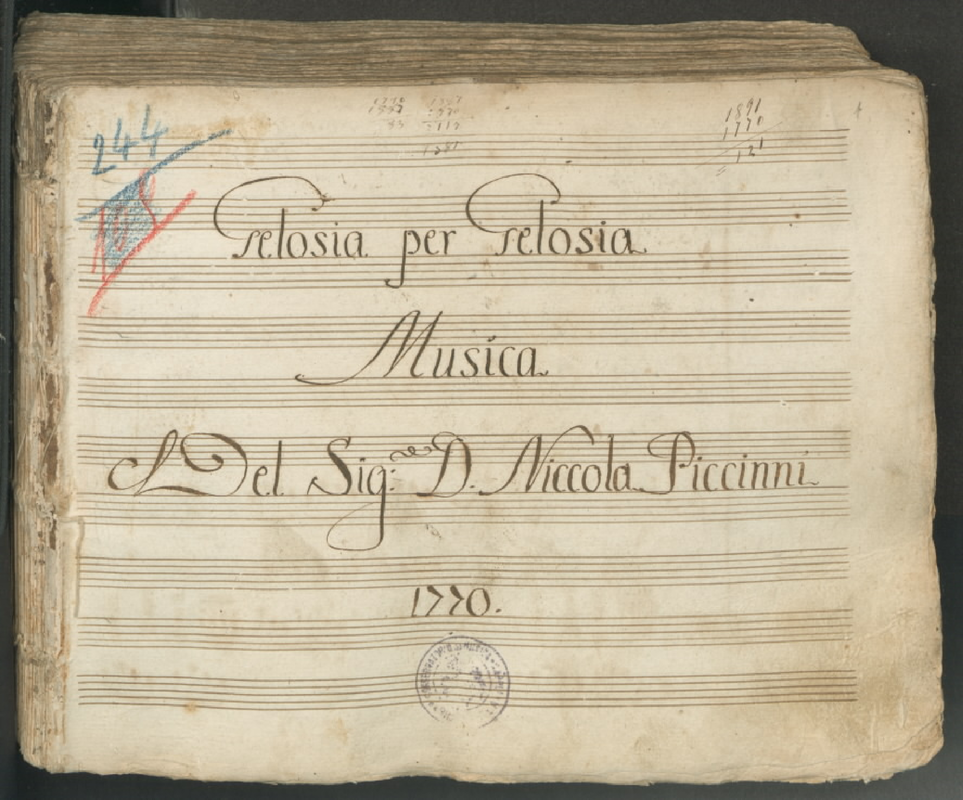 1891
1770
121
244
Gelosia per Gelosia
Musica
Del Sig:re D. Niccola Piccinni
1770.